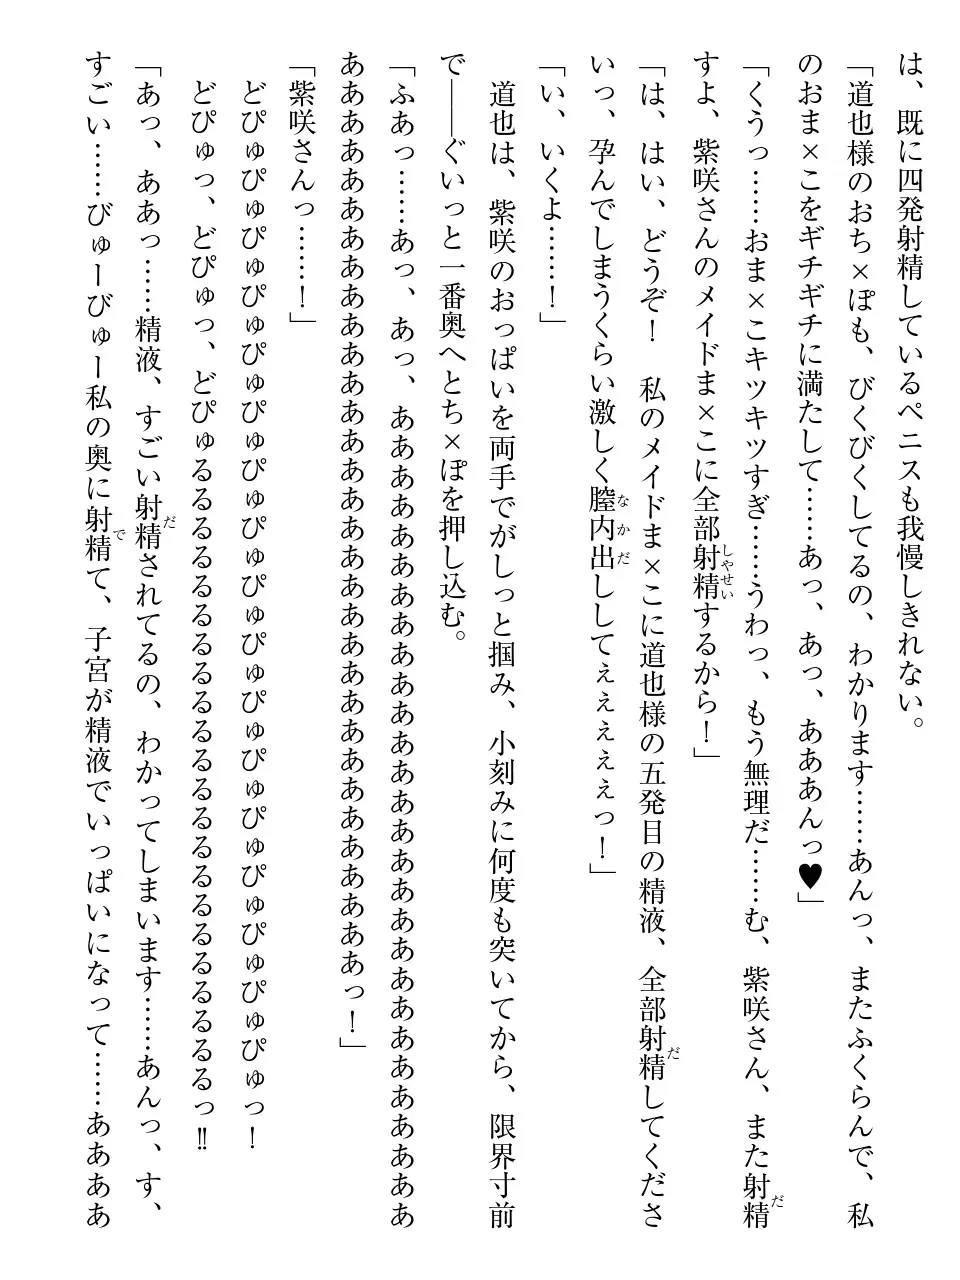 は、既に四発射精しているペニスも我慢しきれない。
「道也様のおち×ぽも、びくびくしてるの、わかります……あんっ、またふくらんで、私
のおま×こをギチギチに満たして……あっ、あっ、あああんっ♥」
「くうっ……おま×こキツキツすぎ……うわっ、もう無理だ……む、紫咲さん、また射精
すよ、紫咲さんのメイドま×こに全部射精するから！」
「は、はい、どうぞ！　私のメイドま×こに道也様の五発目の精液、全部射精してくださ
いっ、孕んでしまうくらい激しく膣内出ししてぇぇぇぇっ！」
「い、いくよ……！」
　道也は、紫咲のおっぱいを両手でがしっと掴み、小刻みに何度も突いてから、限界寸前
で――ぐいっと一番奥へとち×ぽを押し込む。
「ふあっ……あっ、あっ、ああああああああああああああああああああああああああああ
ああああああああああああああああああああああああああああああああっ！」
「紫咲さんっ……！」
　どぴゅぴゅぴゅぴゅぴゅぴゅぴゅぴゅぴゅぴゅぴゅぴゅぴゅぴゅぴゅぴゅぴゅっ！
　どぴゅっ、どぴゅっ、どぴゅるるるるるるるるるるるるるるるるるるるるるるっ‼
「あっ、ああっ……精液、すごい射精されてるの、わかってしまいます……あんっ、す、
すごい……びゅーびゅー私の奥に射精て、子宮が精液でいっぱいになって……ああああ